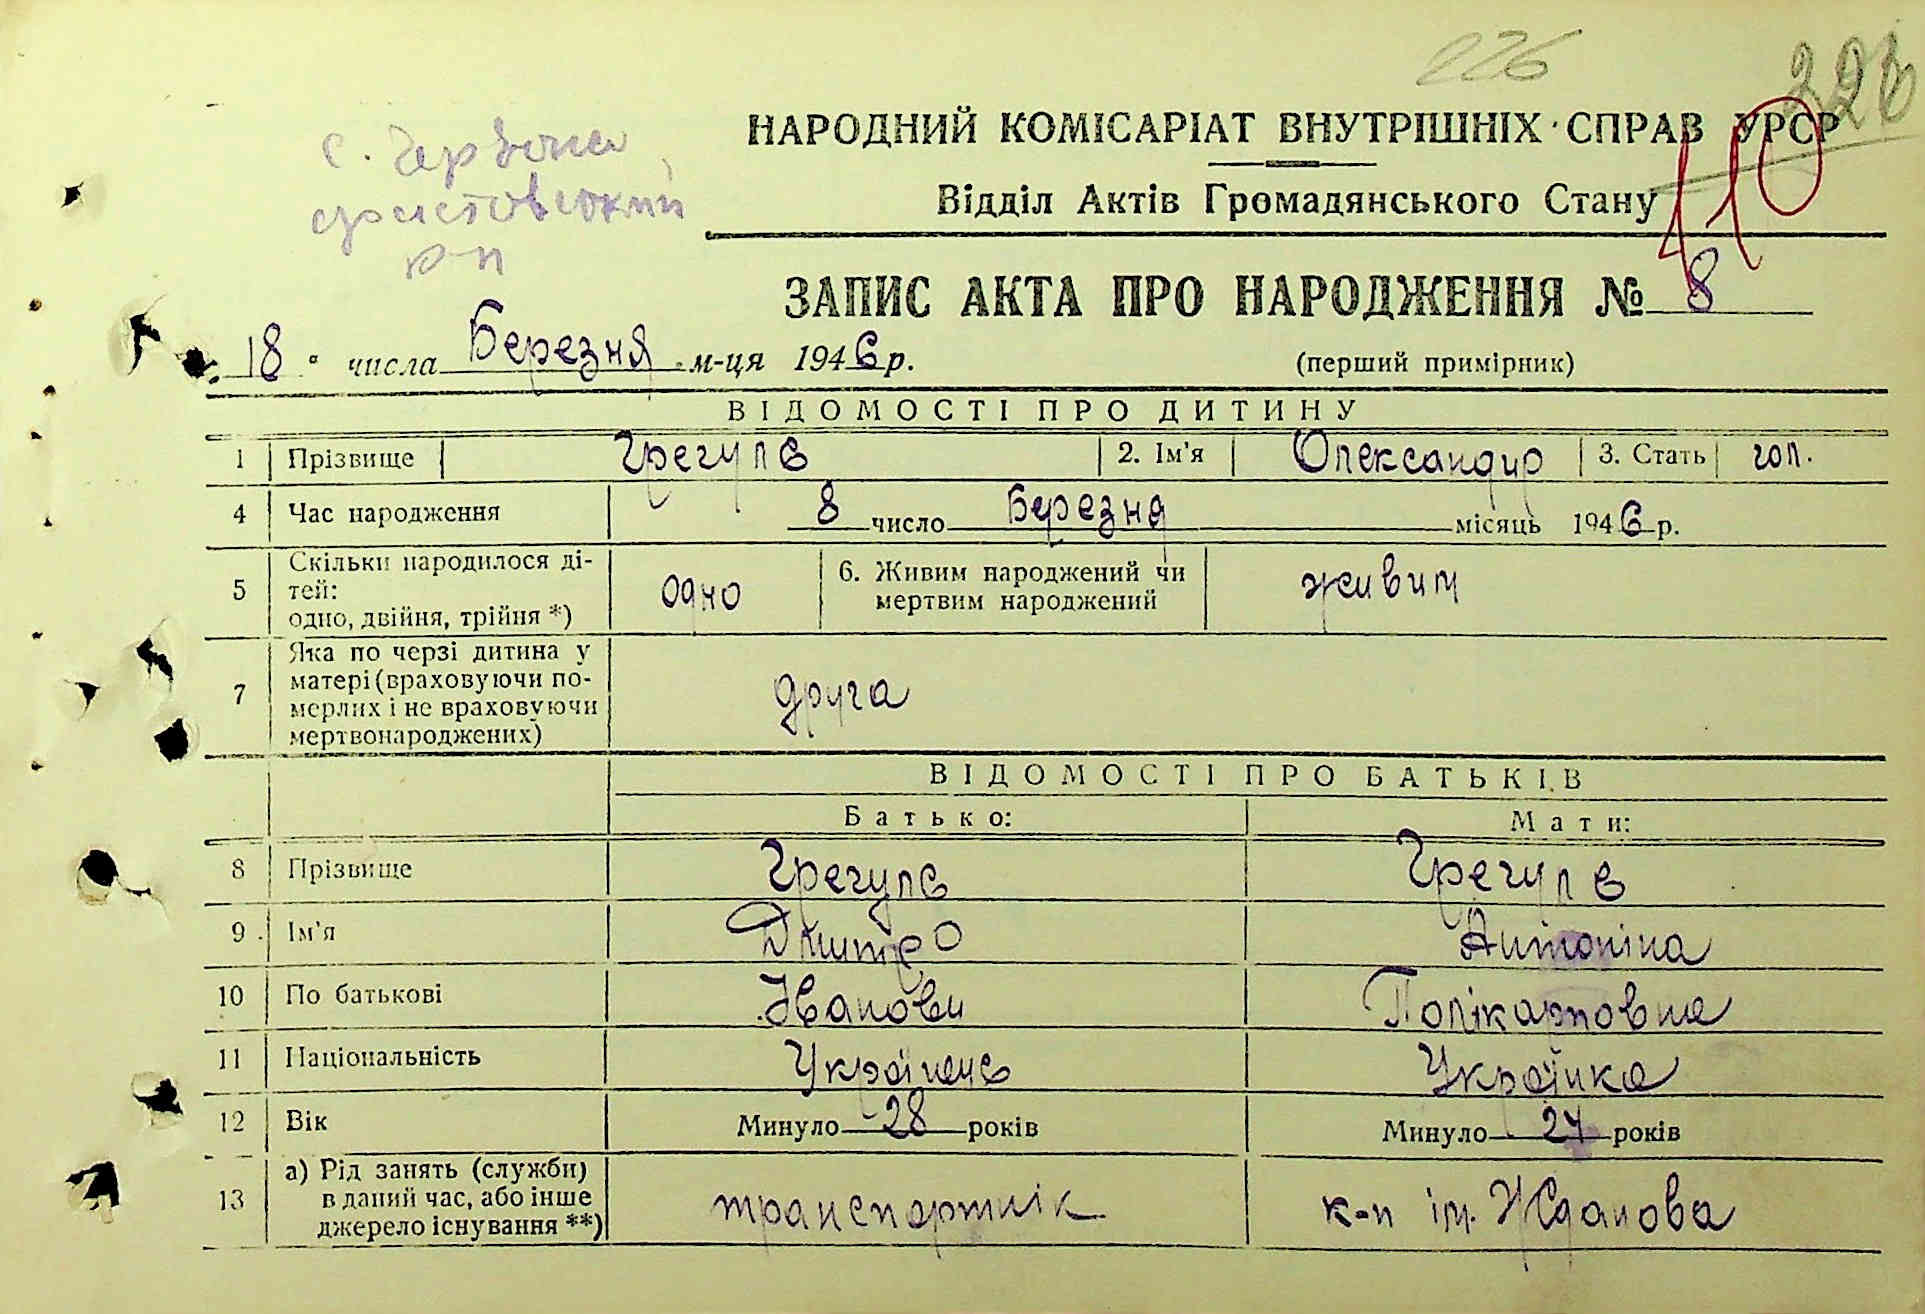 226
223
НАРОДНИЙ КОМІСАРІАТ ВНУТРІШНІХ СПРАВ УРСР
110
с. Червона
Відділ Актів Громадянського Стану
р-н
ЗАПИС АКТА ПРО НАРОДЖЕННЯ № 8
18 числа Березня м-ця 1946 р.
(перший примірник)
ВІДОМОСТІ ПРО ДИТИНУ
1 Прізвище Грегулє 2. Ім'я Олександир 3. Стать чол.
4 Час народження 8 число Березня місяць 1946 р.
5 Скільки народилося ді-
тей:
одно, двійня, трійня *) одно 6. Живим народжений чи
мертвим народжений живим
7 Яка по черзі дитина у
матері (враховуючи по-
мерлих і не враховуючи
мертвонароджених) друга
ВІДОМОСТІ ПРО БАТЬКІВ
Батько: Мати:
8 Прізвище Грегулє Грегулє
9 Ім'я Дмитро Антоніна
10 По батькові Іванови Полікарповна
11 Національність Українец Українка
12 Вік Минуло 28 років Минуло 24 років
13 а) Рід занять (служби)
в даний час, або інше
джерело існування **) транспортнік к-п ім. Жданова